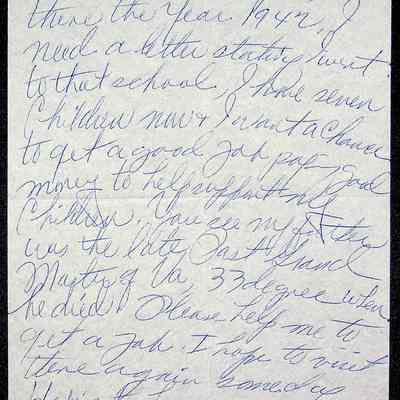 there the year 1942, I
need a letter stating I went
to that school, I have seven
Children now & I want a chance
to get a good Job pay good
money to help support my
Children. You see my father
was the late Past Grand
Master of Va, 33 degree when
he died. Please help me to
get a Job. I hope to visit
there again someday